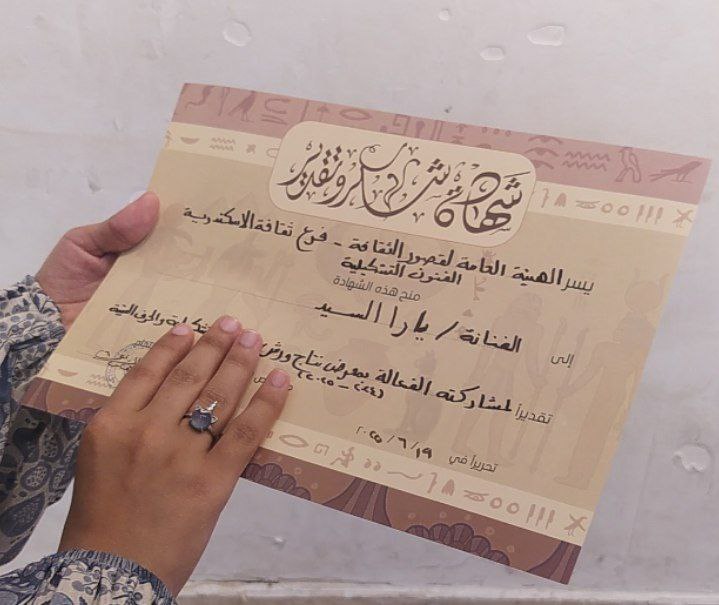 شهادة شكر وتقدير
يسر الهيئة العامة لقصور الثقافة - فرع ثقافة الاسكندرية
الفنون التشكيلية
منح هذه الشهادة
إلى الفنانة / يارا السيد
تقديراً لمشاركته الفعالة بمعرض نتاج ورش والحرف الفنية
(٢٠٢٤ - ٢٠٢٥)
تحريراً في ١٩ / ٦ / ٢٠٢٥